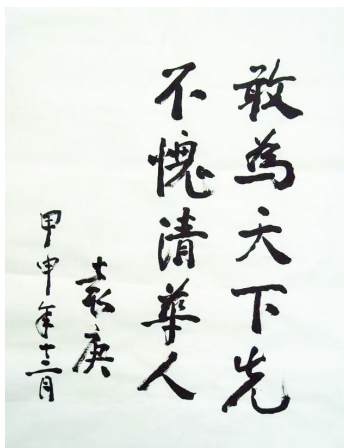 敢為天下先
不愧清華人
袁庚
甲申年十二月